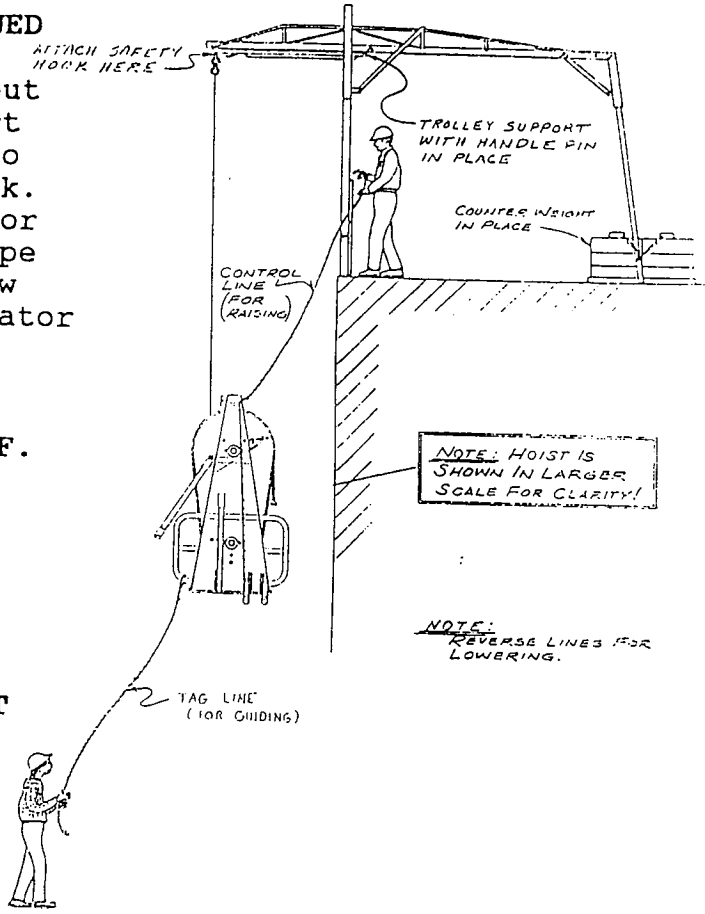 UED
ATTACH SAFETY
HOOK HERE
ut
rt
o
k.
or
pe
w
ator
F.
T
TROLLEY SUPPORT
WITH HANDLE PIN
IN PLACE
COUNTER WEIGHT
IN PLACE
CONTROL
LINE
(FOR
RAISING)
NOTE: HOIST IS
SHOWN IN LARGER
SCALE FOR CLARITY!
NOTE:
REVERSE LINES FOR
LOWERING.
TAG LINE
(FOR GUIDING)